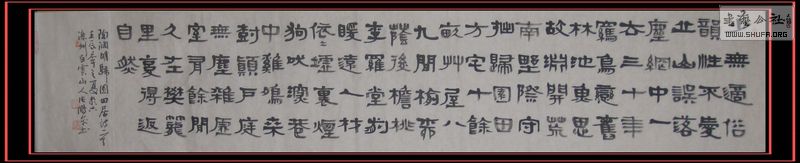 少無適俗
韻性本愛
丘山誤落
塵網中一
去三十年
羈鳥戀舊
林池魚思
故淵開荒
南野際守
拙歸園田
方宅十餘
畝草屋八
九間榆柳
蔭後檐桃
李羅堂前
暖暖遠人村
依依墟里煙
狗吠深巷
中雞鳴桑
樹顛戶庭
無塵雜虛
室有餘閒
久在樊籠
里復得返
自然
陶淵明歸園田居詩一首
白雲山人
书法公社
WWW.SHUFA.ORG